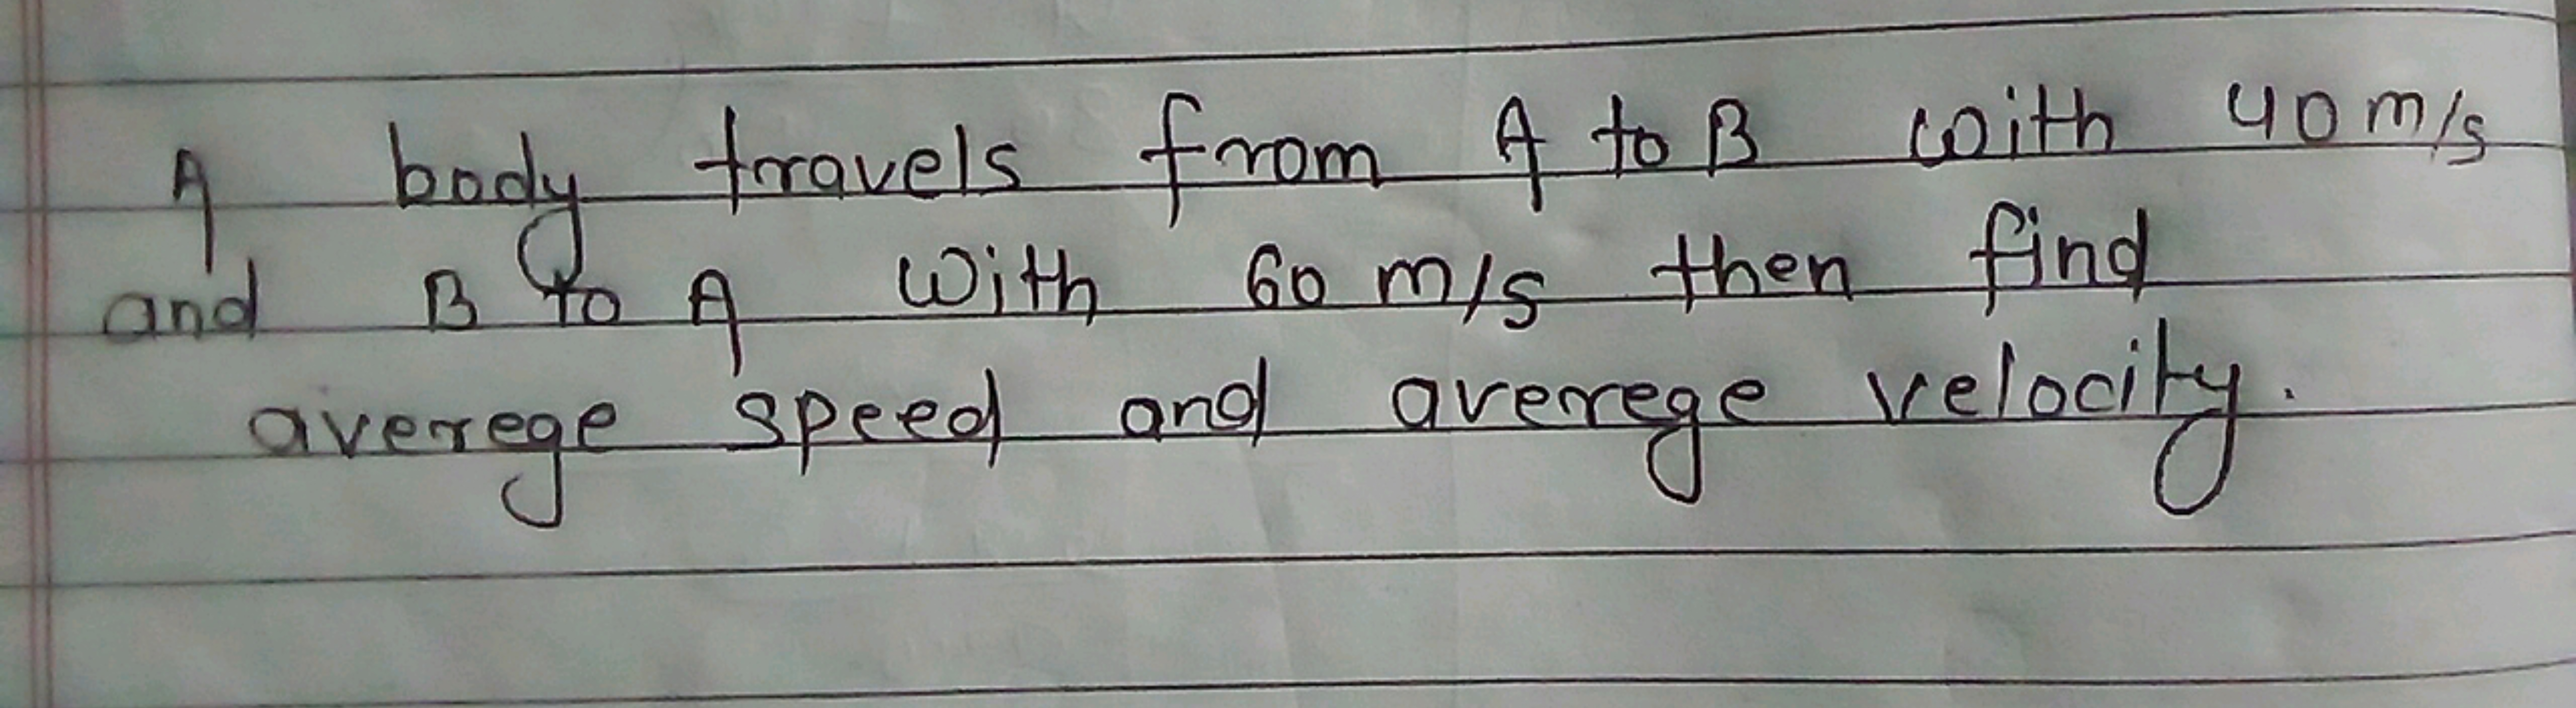 A body travels from A to B with 40 m/s
and B to A with 60 m/s then find
averege speed and averege velocity.